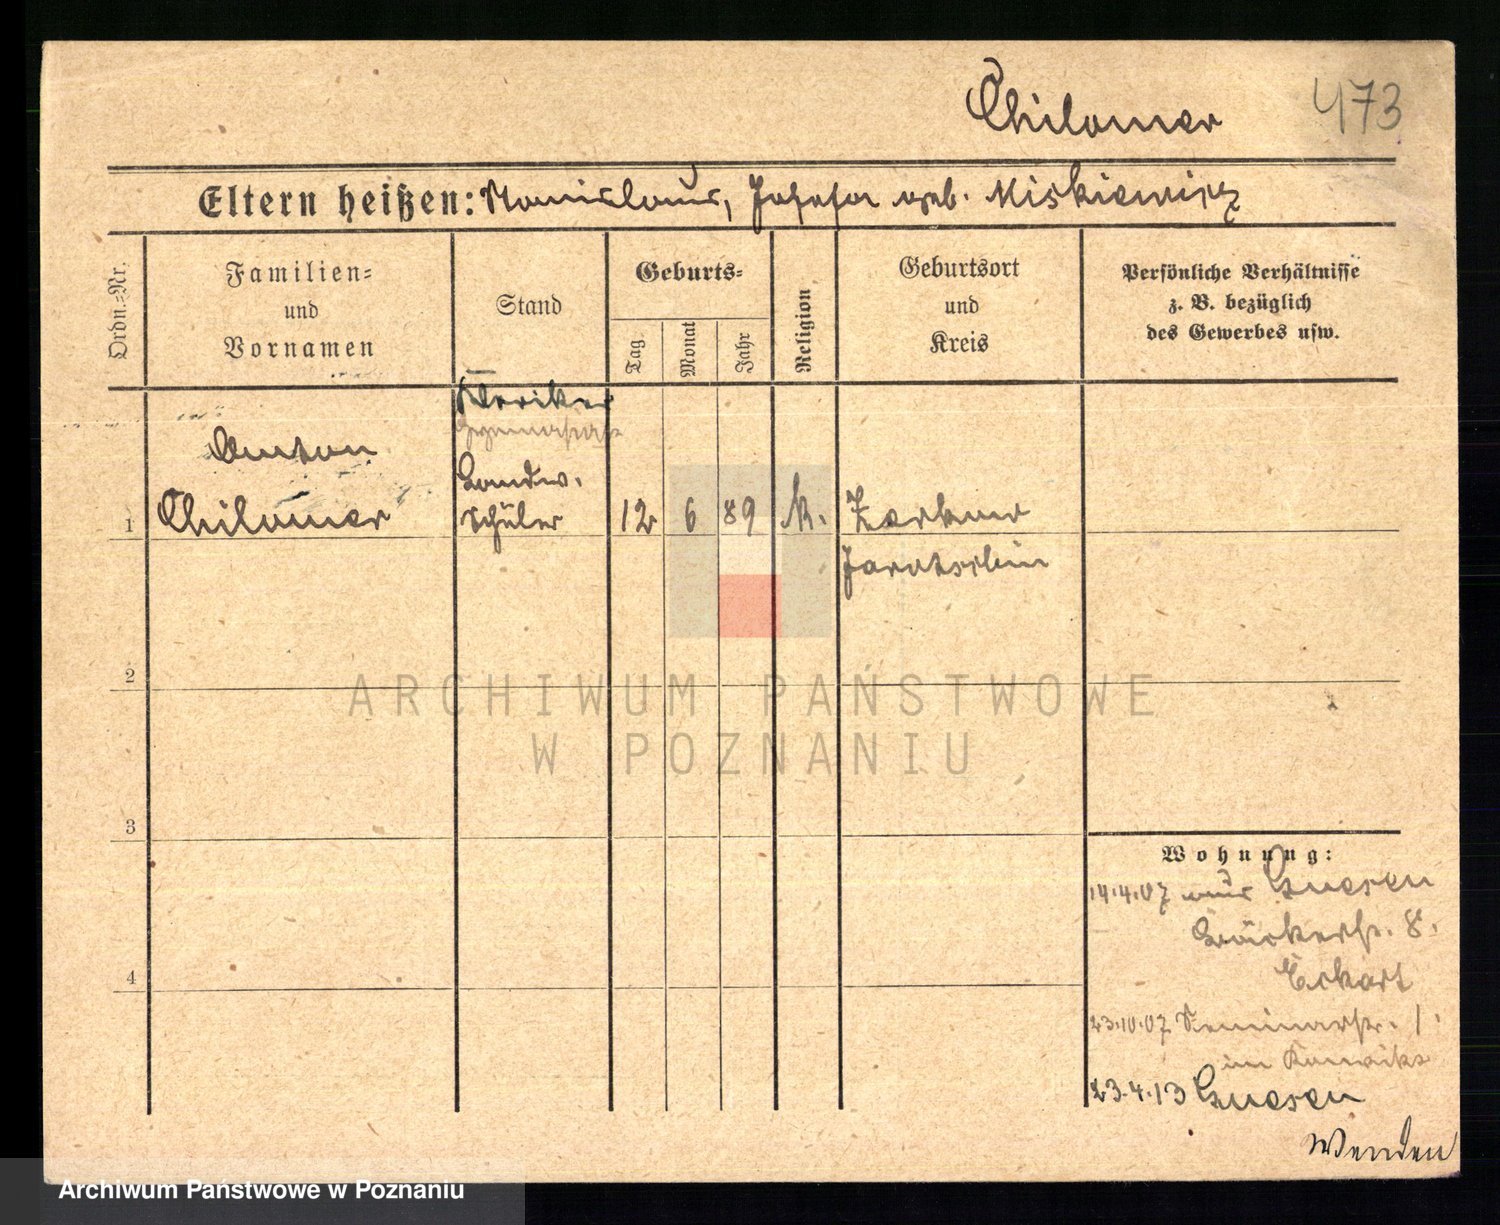 Chilomer 473
Eltern heißen: Stanislaus, Josefa geb. Miskiewicz
Ordn.=Nr.
Familien=
und
Vornamen
Stand
Geburts=
Tag
Monat
Jahr
Religion
Geburtsort
und
Kreis
Persönliche Verhältnisse
z. B. bezüglich
des Gewerbes usw.
Kleriker
Anton
Landw.
1 Chilomer Schüler 12 6 89 k. Zerkow
Jarotschin
2
3
4
Wohnung:
14.4.07 aus Gnesen
8.
Eckart
23.10.07 Seminarstr. 1.
im Konvikt
23.4.13 Gnesen
Wenden
ARCHIWUM PAŃSTWOWE
W POZNANIU
Archiwum Państwowe w Poznaniu